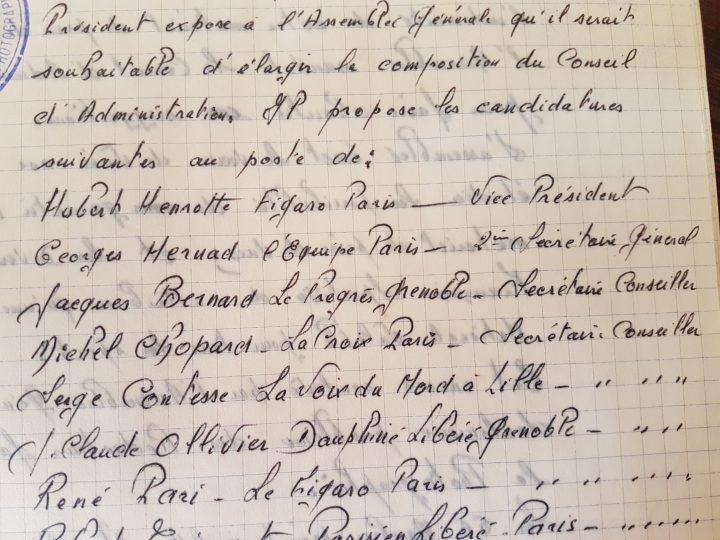 PHOTOGRAP
Président expose à l'Assemblée Générale qu'il serait
souhaitable d'élargir la composition du Conseil
d'Administration. Il propose les candidatures
suivantes au poste de:
Hubert Henrotte Figaro Paris — Vice Président
Georges Hernad l'Equipe Paris — 2ème Secrétaire Général
Jacques Bernard Le Progrès Grenoble - Secrétaire Conseiller
Michel Chopard - La Croix Paris - Secrétaire Conseiller
Serge Contesse La Voix du Nord à Lille - " " "
J. Claude Ollivier Dauphiné Libéré Grenoble - " " "
René Pari - Le Figaro Paris - " " " "
Parisien Libéré - Paris - " " "